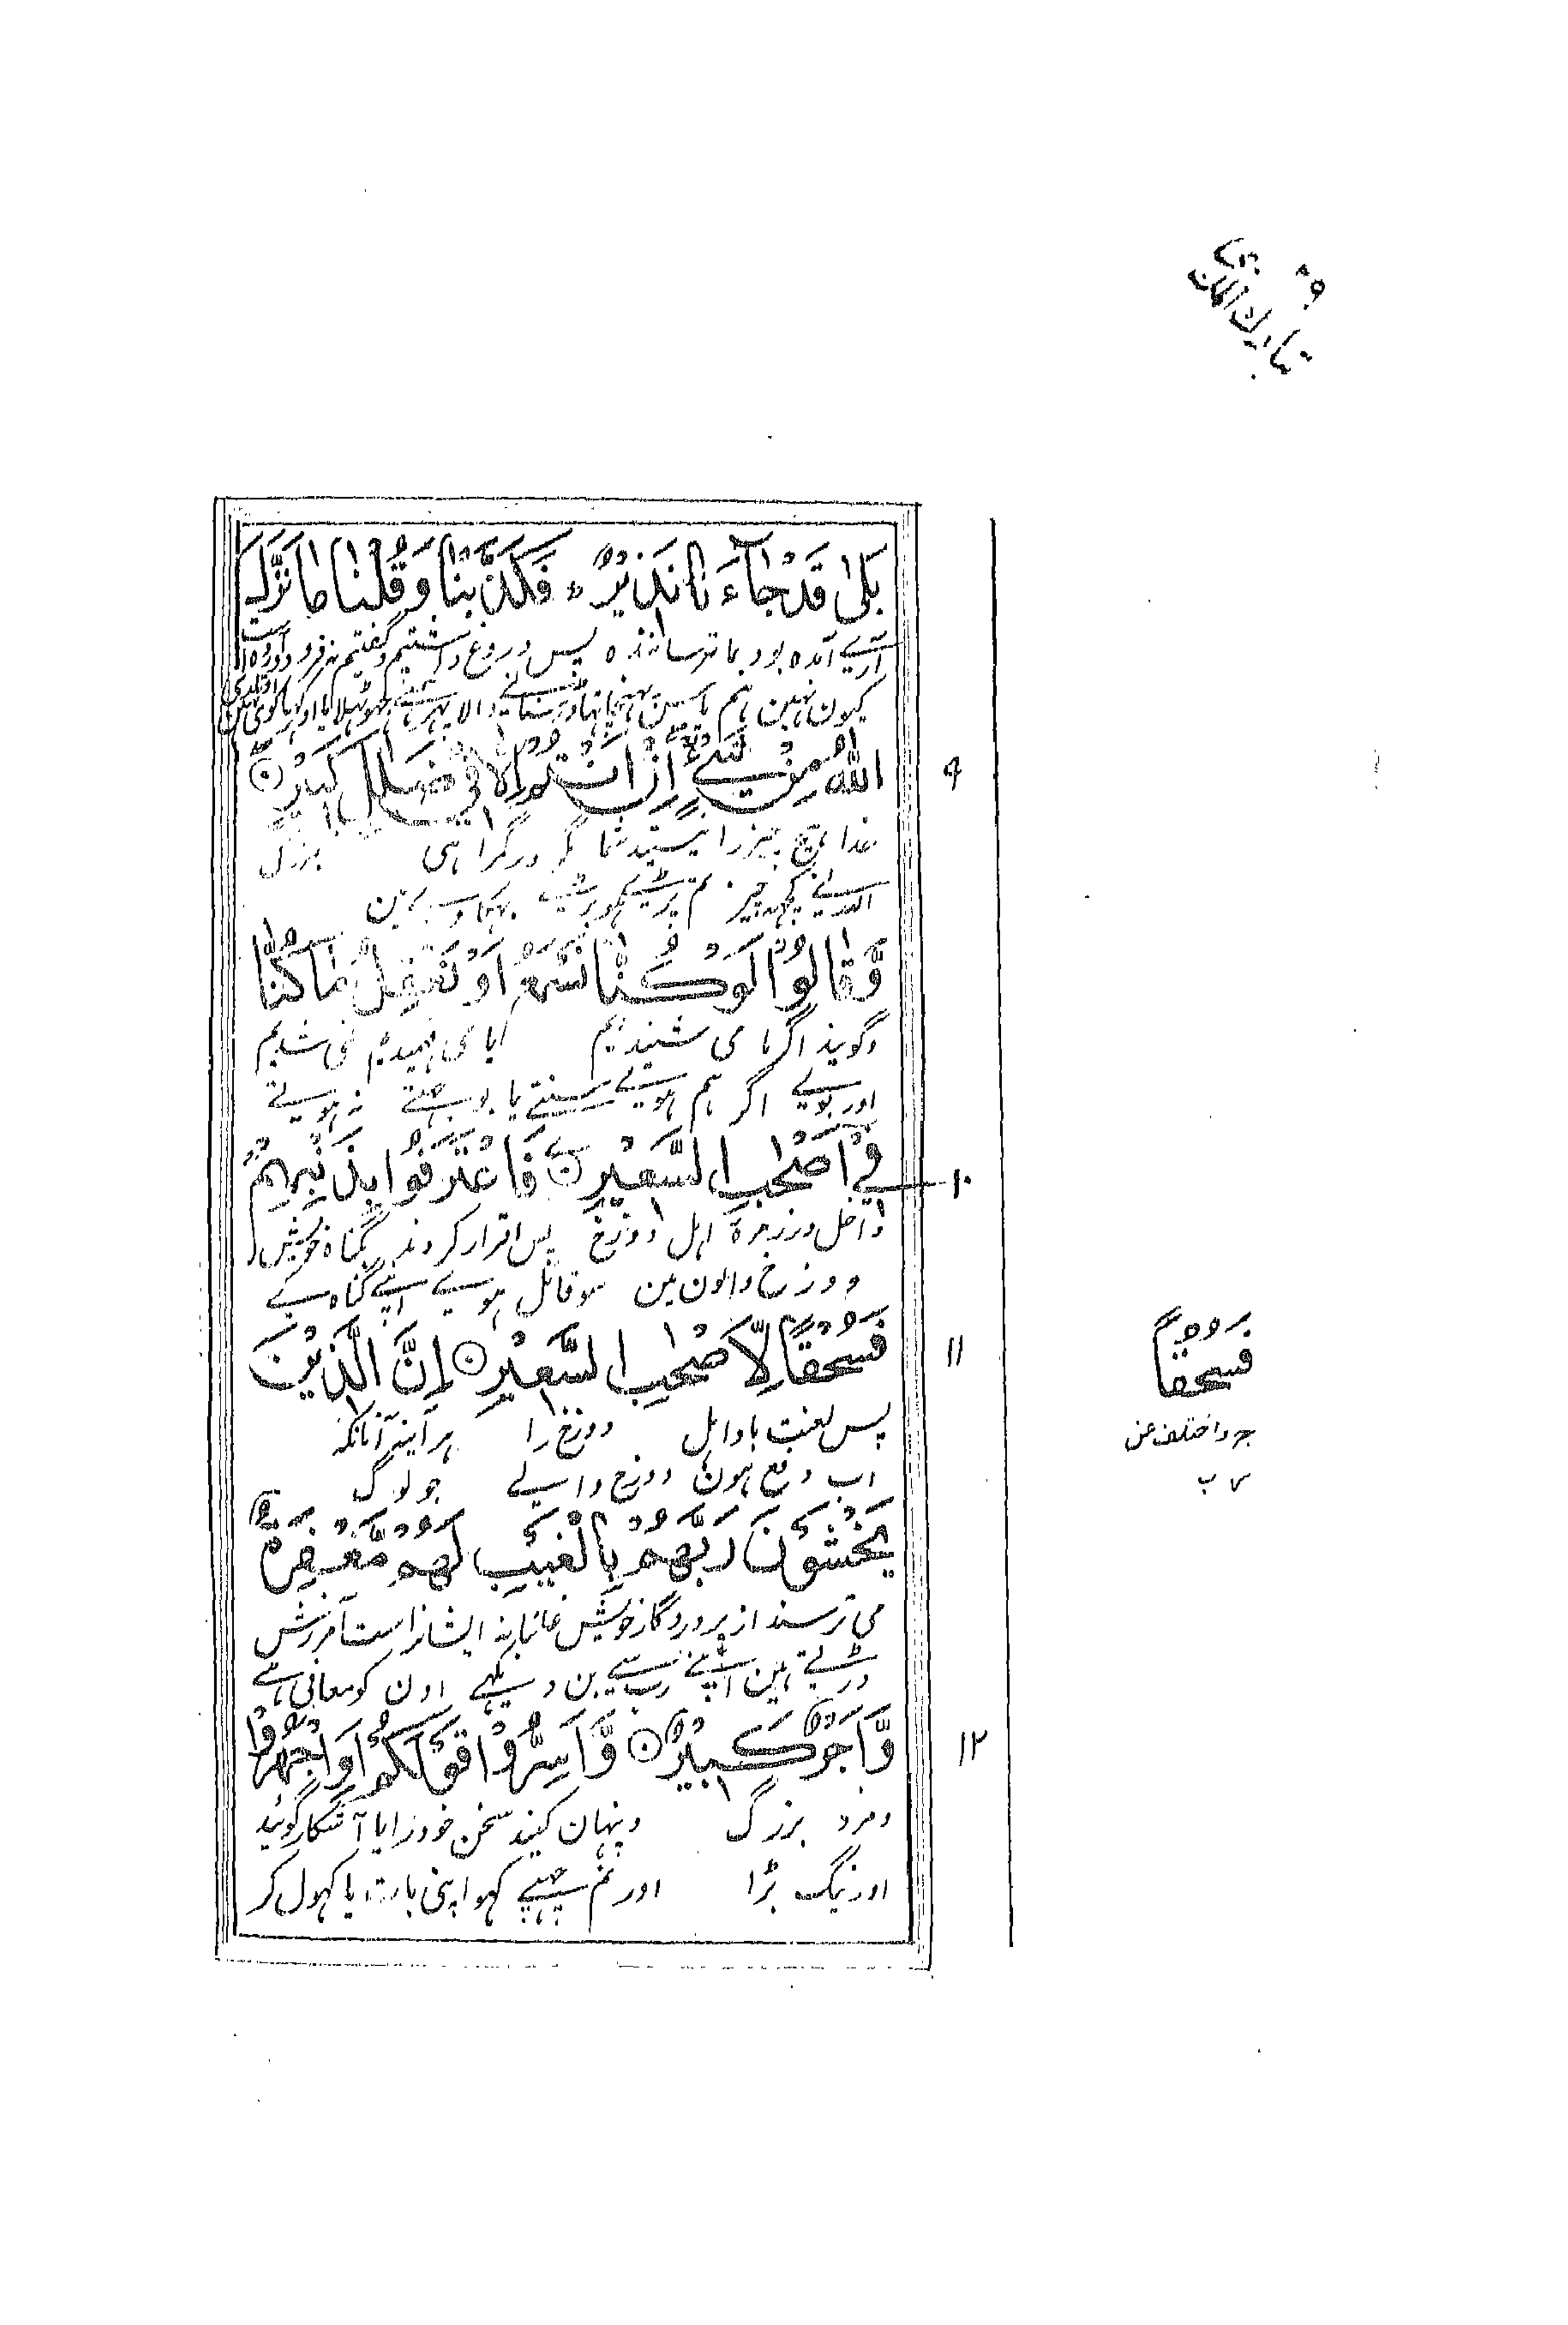 تبارك الذى ٢٩
بَلٰى قَدْ جَآءَنَا نَذِيْرٌ ۙ فَكَذَّبْنَا وَقُلْنَا مَا نَزَّلَ
آرے آمدہ بود بما ترسانندہ پس دروغ داشتیم و گفتیم نہ فرود آوردہ است
کیون نہین ہم پاس پہنچا تہا ڈر سنانے والا پہر ہمنے جہوٹہلایا اور کہا کوئی نہین اوتاری
اللّٰهُ مِنْ شَيْءٍ ۚ اِنْ اَنْتُمْ اِلَّا فِيْ ضَلٰلٍ كَبِيْرٍ ۝ ٩
خدا ہیچ چیز را نیستید شما مگر در گمراہی بزرگ
اللہ نے کچہہ چیز تم پڑے ہو بڑے بہکاوے مین
وَقَالُوْا لَوْ كُنَّا نَسْمَعُ اَوْ نَعْقِلُ مَا كُنَّا
و گویند اگر ما می شنیدیم یا می فہمیدیم نمی شدیم
اور بولے اگر ہم ہوتے سنتے یا بوجہتے نہ ہوتے
فِيْ اَصْحٰبِ السَّعِيْرِ ۝ فَاعْتَرَفُوْا بِذَنْبِهِمْ ١٠
داخل در زمرۂ اہل دوزخ پس اقرار کردند بگناہ خویش
دوزخ والون مین سو قائل ہوے اپنے گناہ کے
فَسُحْقًا لِّاَصْحٰبِ السَّعِيْرِ ۝ اِنَّ الَّذِيْنَ ١١
پس لعنت باد اہل دوزخ را ہر آینہ آنانکہ
اب دفع ہون دوزخ والے جو لوگ
يَخْشَوْنَ رَبَّهُمْ بِالْغَيْبِ لَهُمْ مَّغْفِرَةٌ
می ترسند از پروردگار خویش غائبانہ ایشانراست آمرزش
ڈرتے ہین اپنے رب سے بن دیکہے اون کو معافی ہے
وَّاَجْرٌ كَبِيْرٌ ۝ وَاَسِرُّوْا قَوْلَكُمْ اَوِ اجْهَرُوْا ١٢
و مزد بزرگ و پنہان کنید سخن خود را یا آشکار گوئید
اور نیگ بڑا اور تم چہپے کہو اپنی بات یا کہول کر
فَسُحُقًا
واختلف عن